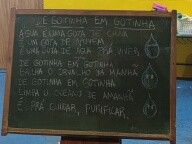 DE GOTINHA EM GOTINHA
ÁGUA É UMA GOTA DE CHUVA
É UM GOTA DE NUVEM
É UMA GOTA DE ÁGUA PRA VIVER
DE GOTINHA EM GOTINHA
O ORVALHO DA MANHÃ
DE GOTINHA EM GOTINHA
LIMPA O OCEANO DE AMANHÃ
É PRA CUIDAR, PURIFICAR